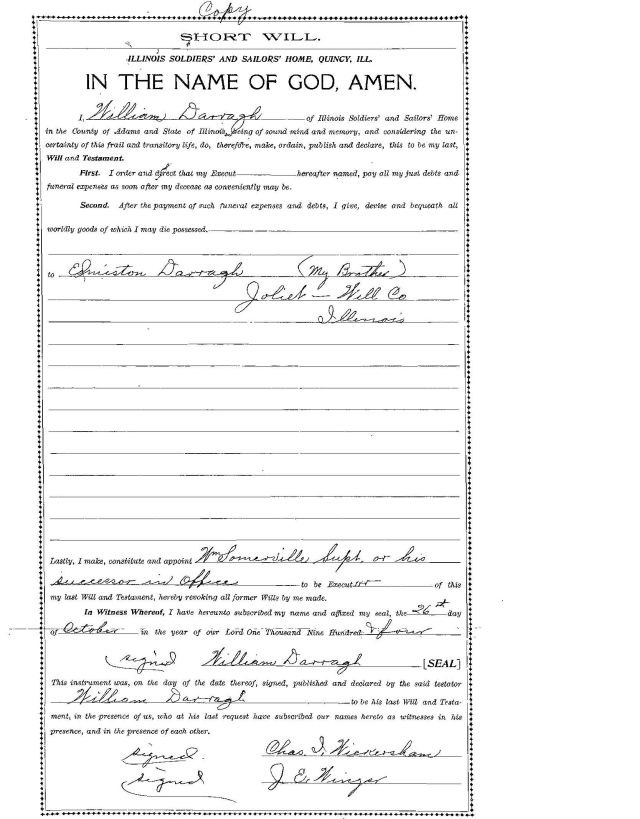 Copy
SHORT WILL.
ILLINOIS SOLDIERS' AND SAILORS' HOME, QUINCY, ILL.
IN THE NAME OF GOD, AMEN.
I, William Darragh of Illinois Soldiers' and Sailors' Home
in the County of Adams and State of Illinois, being of sound mind and memory, and considering the un-
certainty of this frail and transitory life, do, therefore, make, ordain, publish and declare, this to be my last,
Will and Testament.
First. I order and direct that my Execut hereafter named, pay all my just debts and
funeral expenses as soon after my decease as conveniently may be.
Second. After the payment of such funeral expenses and debts, I give, devise and bequeath all
worldly goods of which I may die possessed.
to Edmiston Darragh (My Brother)
Joliet — Will Co
Illinois
Lastly, I make, constitute and appoint Wm Somerville, Supt. or his
successor in Office to be Executor of this
my last Will and Testament, hereby revoking all former Wills by me made.
In Witness Whereof, I have hereunto subscribed my name and affixed my seal, the 26th day
of October in the year of our Lord One Thousand Nine Hundred & four
signed William Darragh [SEAL]
This instrument was, on the day of the date thereof, signed, published and declared by the said testator
William Darragh to be his last Will and Testa-
ment, in the presence of us, who at his last request have subscribed our names hereto as witnesses in his
presence, and in the presence of each other.
signed. Chas. I. Wickersham
signed J. E. Winzar